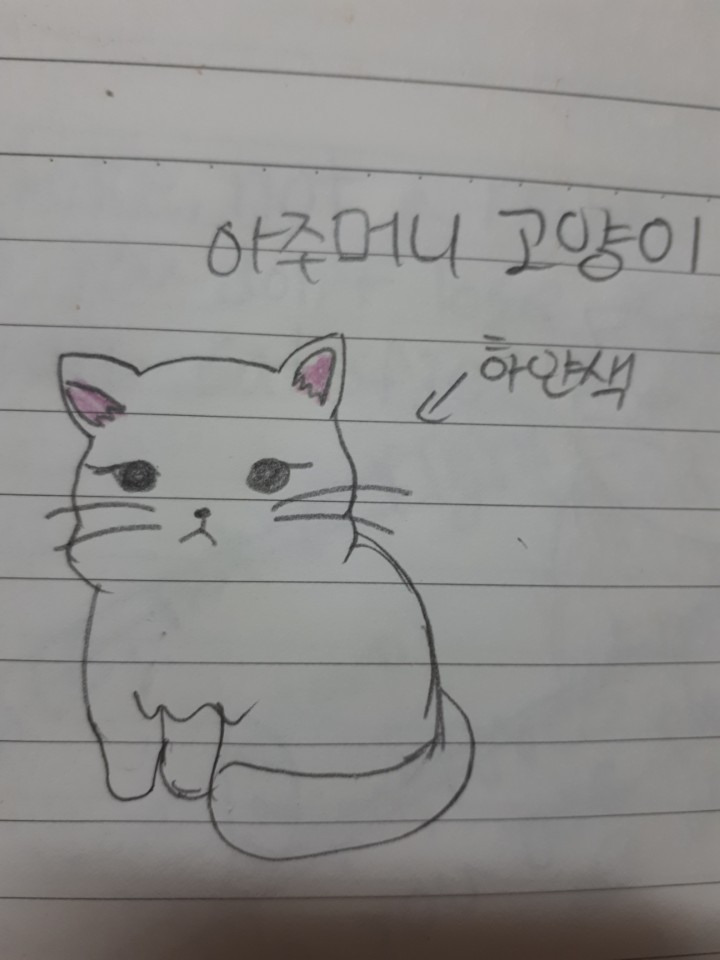 아주머니 고양이
하얀색